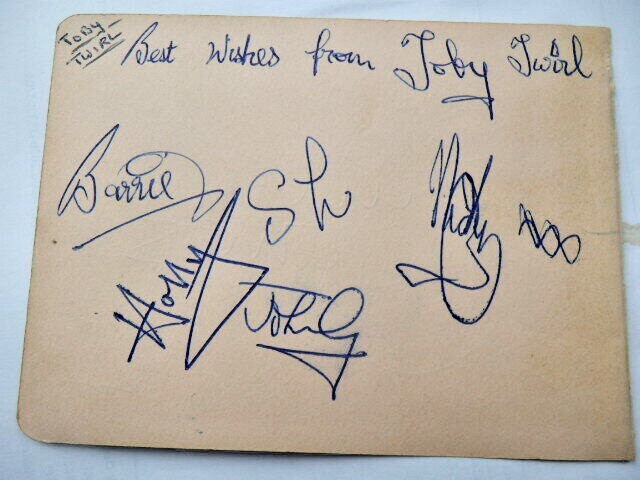 TOBY
TWIRL
Best Wishes from Toby Twirl
Barrie
Stu
Nicky xxx
Holly
John G